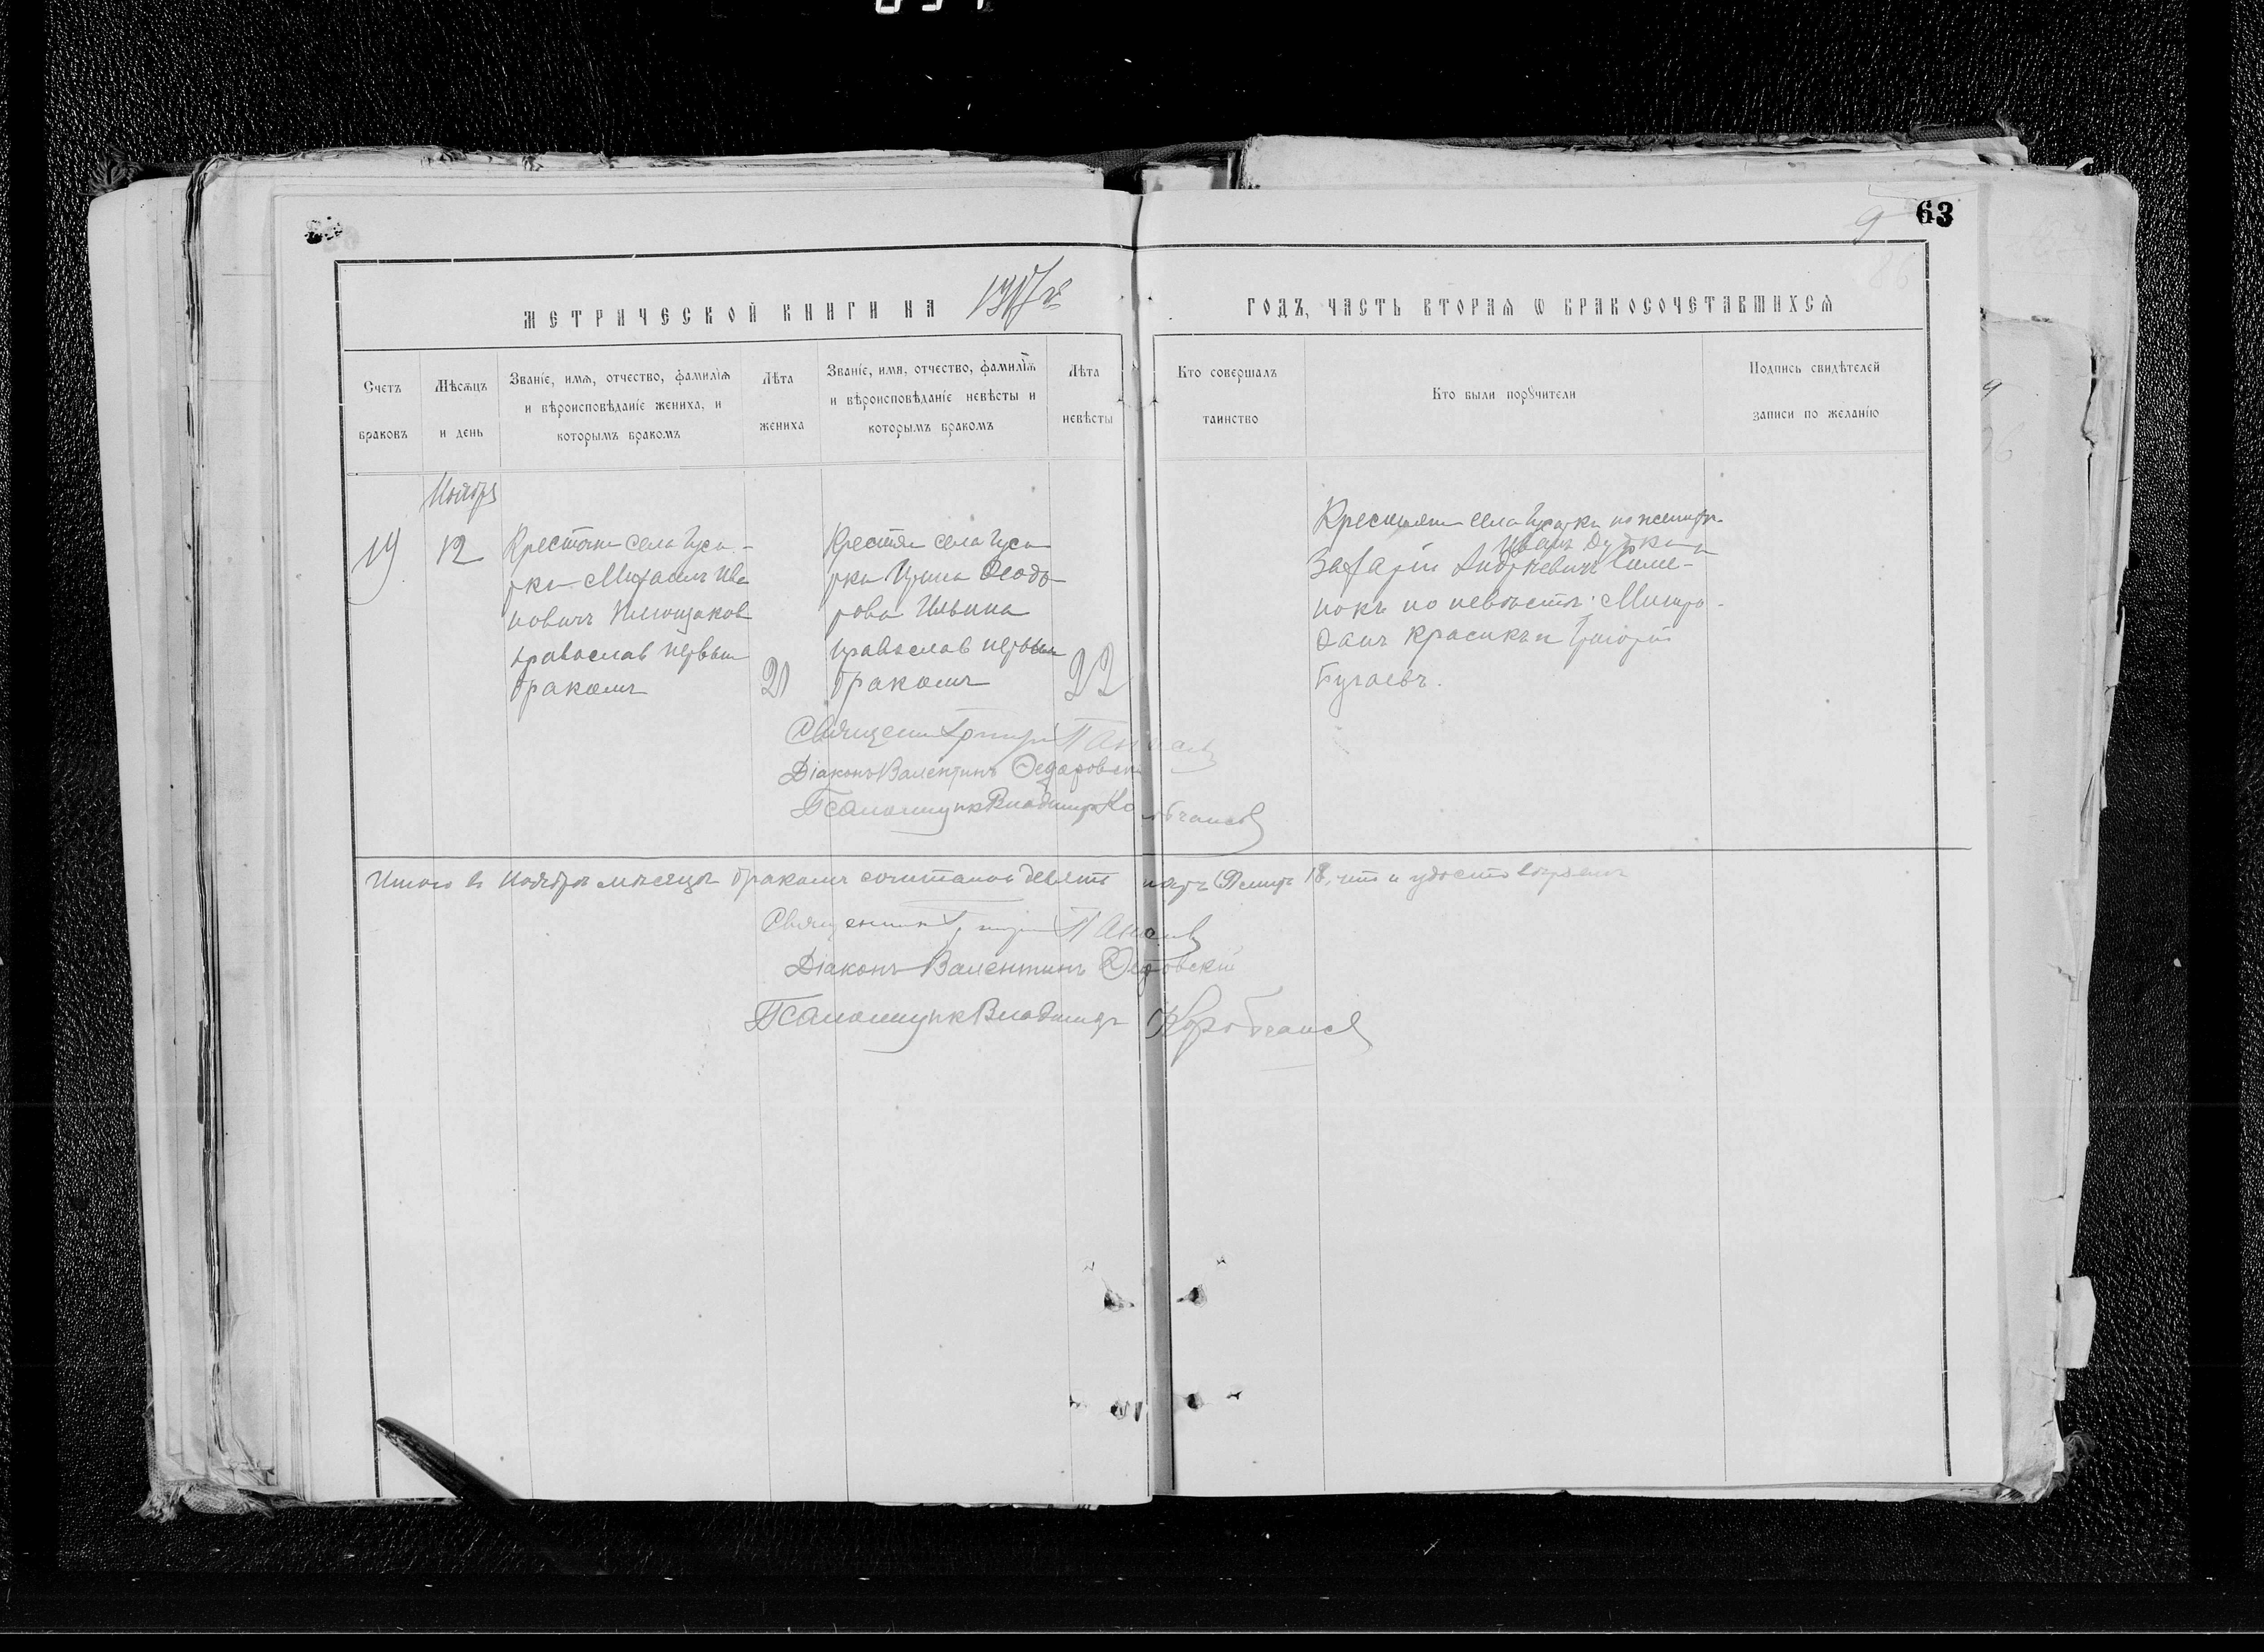 63
9
86
МЕТРИЧЕСКОЙ КНИГИ НА 1917й ГОДЪ, ЧАСТЬ ВТОРАЯ Ѡ БРАКОСОЧЕТАВШИХСЯ
Счетъ браковъ
Мѣсяцъ и день
Званіе, имя, отчество, фамилія
и вѣроисповѣданіе жениха, и
которымъ бракомъ
Лѣта жениха
Званіе, имя, отчество, фамилія
и вѣроисповѣданіе невѣсты и
которымъ бракомъ
Лѣта невѣсты
Кто совершалъ
таинство
Кто были порꙋчители
Подпись свидѣтелей
записи по желанію
Ноября
19
12
Крестьян села Гуса-
рки Михаилъ Ива
новичъ
православ первым
бракомъ
21
Крестьян села Гуса
рки Ирина Ѳеодо
рова Ильина
православ первым
бракомъ
22
Крестьяне села Гусарки по жениху
Иванъ
Захарій Симе-
нокъ по невѣстѣ: Митро
фанъ Красикъ и Григорій
Бугаевъ.
Священ Григорій
Діаконъ Валентинъ Ѳедоровскій
Псаломщик Владимиръ
Итого въ Ноябрѣ мѣсяцѣ бракомъ сочетанно девять паръ 18, что и удостовѣряемъ
Священник Григорій
Діаконъ Валентинъ
Псаломщик Владимиръ